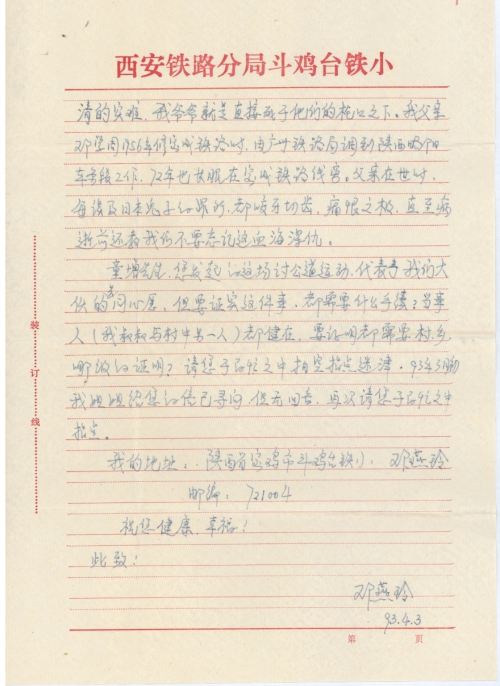 西安铁路分局斗鸡台铁小
清的灾难,我爷爷就是直接死于他们的枪口之下。我父亲
邓坚1956年修宝成铁路时,由广州铁路局调到陕西略阳
车务段工作,72年也长眠在宝成铁路线旁。父亲在世时,
每谈及日本鬼子的罪行,都咬牙切齿,痛恨之极,直至病
逝前还教我们不要忘记这血海深仇。
童增先生,您发起的这场讨公道运动,代表了我们大
伙的共同心愿,但要证实这件事,都需要什么手续?当事
人(我叔叔与村中另一人)都健在,要证明都需要村、乡
哪级的证明?请您于百忙之中抽空指点迷津。93年3月初
我姐姐给您的信已寄向,但无回音,再次请您于百忙之中
指点。
我的地址:陕西省宝鸡市斗鸡台铁小 邓燕玲
邮编:721004
祝您健康,幸福!
此致!
邓燕玲
93.4.3
第 页
装订线